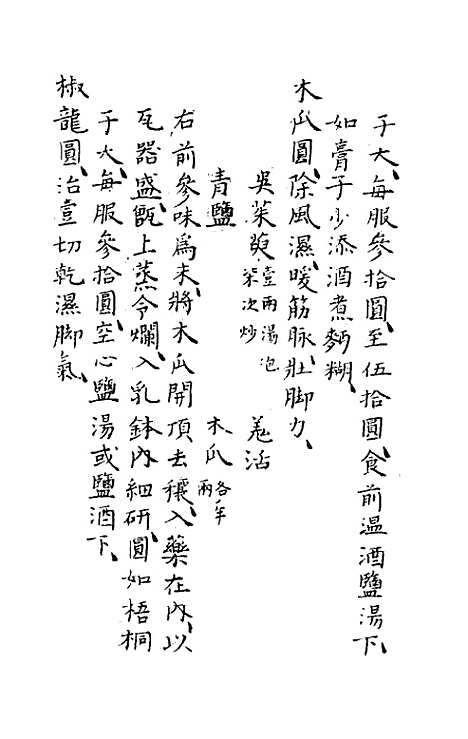 子大、每服參拾圓、至伍拾圓、食前温酒鹽湯下、
如膏子少添酒煮麪糊、
木瓜圓、除風濕、暖筋脉、壯脚力、
吳茱萸壹兩湯泡柒次炒　羗活
青鹽　木瓜各半兩
右前參味爲末、將木瓜開頂去穰、入藥在內、以
瓦器盛、甑上蒸令爛、入乳鉢內細研、圓如梧桐
子大、每服參拾圓、空心鹽湯或鹽酒下、
椒龍圓、治壹切乾濕脚氣、